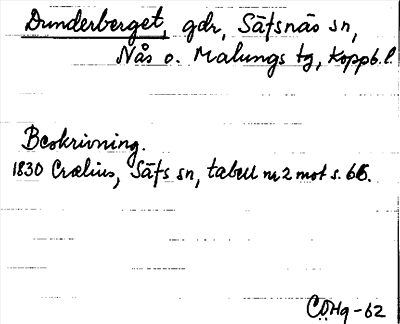 Dunderberget, gdr, Säfsnäs sn,
Nås o. Malungs tg, Koppb. l.
Beskrivning.
1830 Crælius, Säfs sn, tabell nr 2 mot s. 66.
CÖHg-62